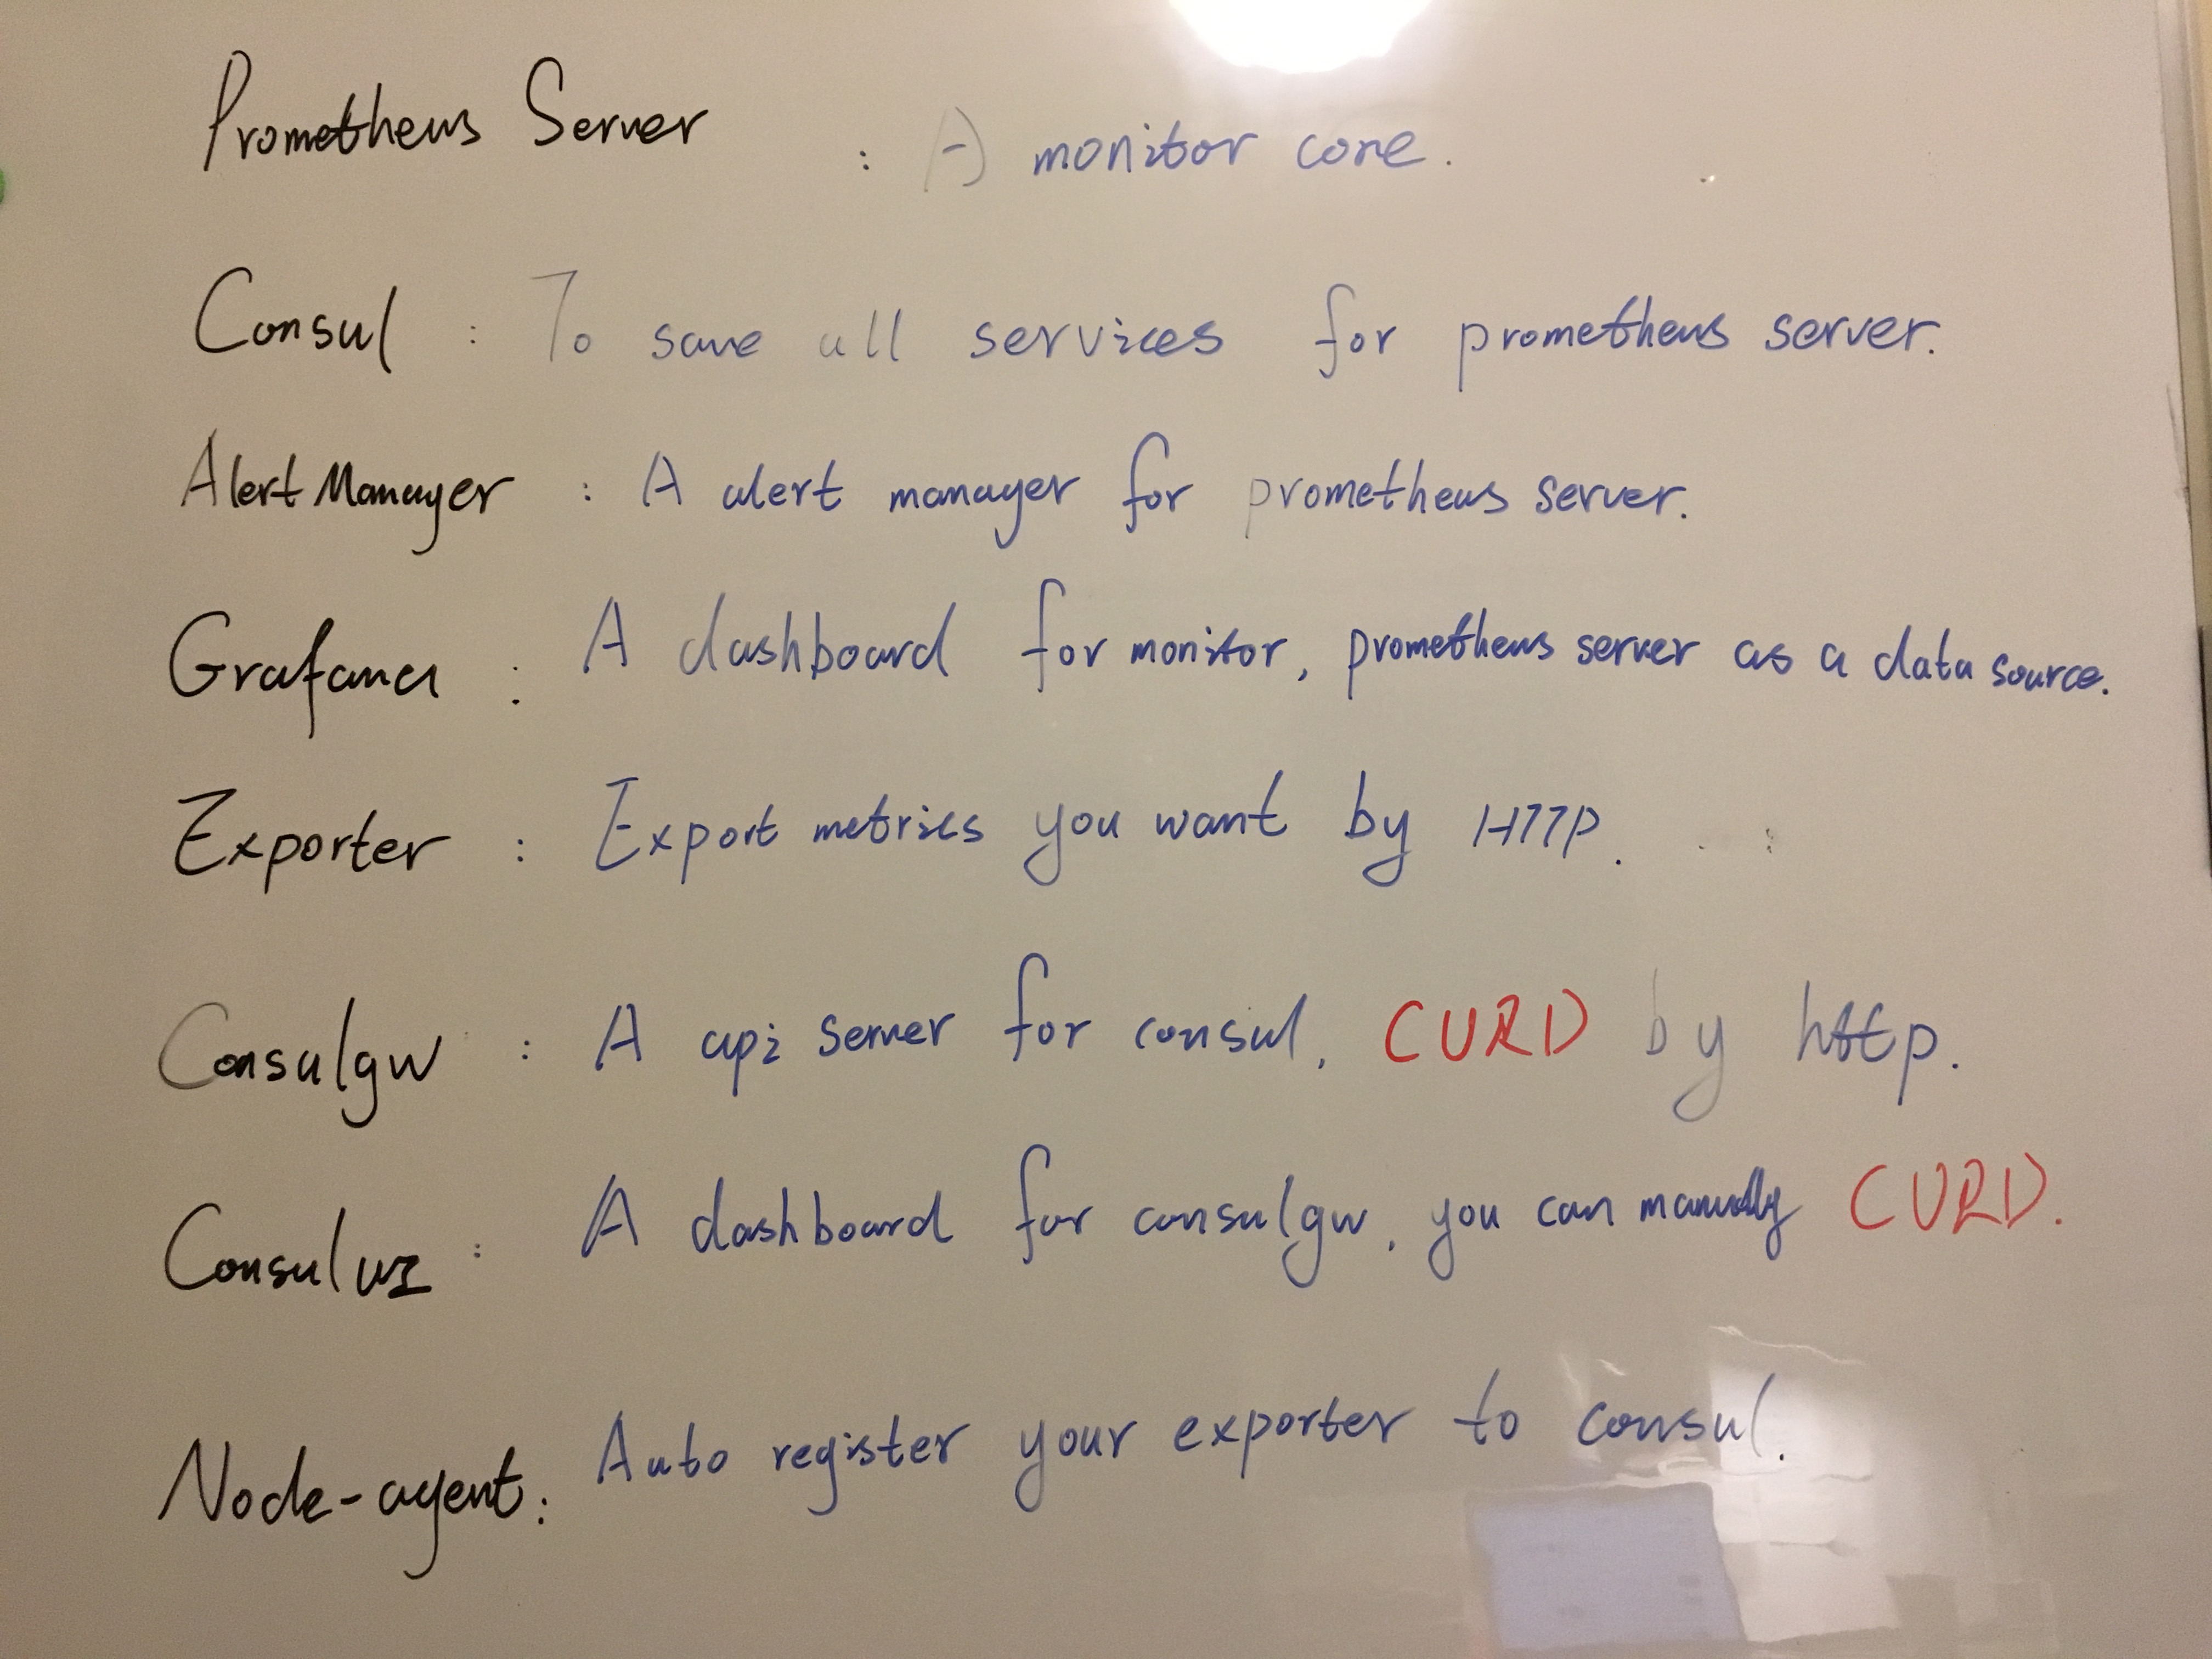 Prometheus Server : A monitor core.
Consul : To save all services for prometheus server.
Alert Manager : A alert manager for prometheus server.
Grafana : A dashboard for monitor, prometheus server as a data source.
Exporter : Export metrics you want by HTTP.
Consulgw : A api server for consul, CURD by http.
Consul UI : A dashboard for consulgw, you can manually CURD.
Node-agent: Auto register your exporter to consul.